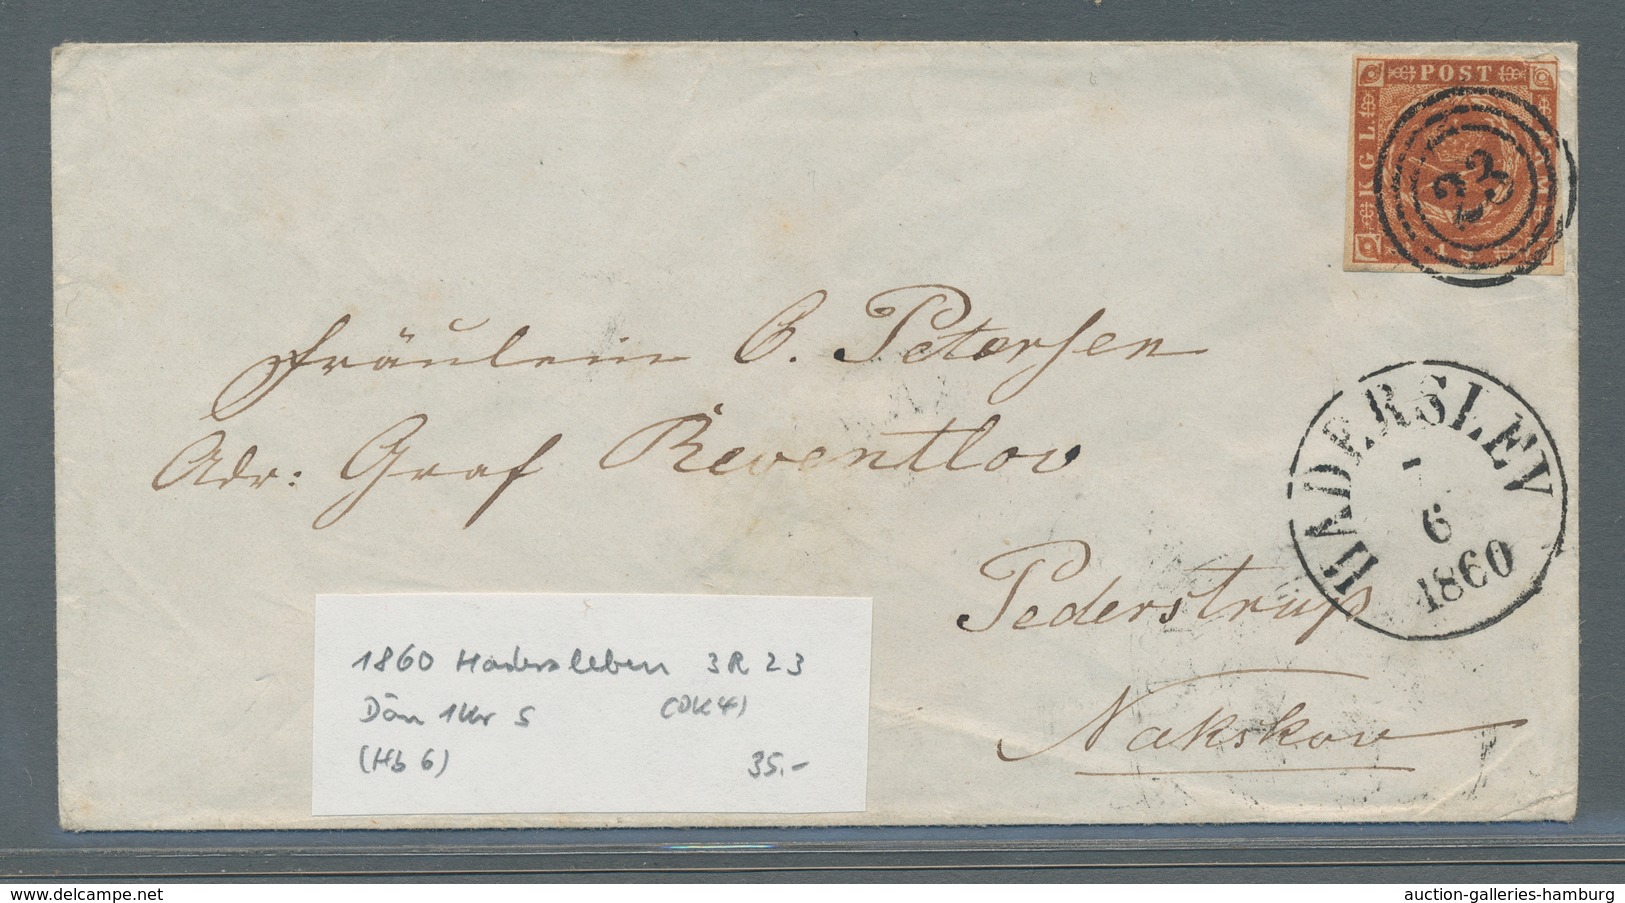 KGL POST FRM
23
Fräulein C. Petersen
Adr: Graf Reventlov
HADERSLEV
6
1860
Pederstrup
Nakskov
1860 Hadersleben 3R23
Dän 1Kr 5 (DK4)
(Hb 6) 35.-
delcampe.net auction-galleries-hamburg